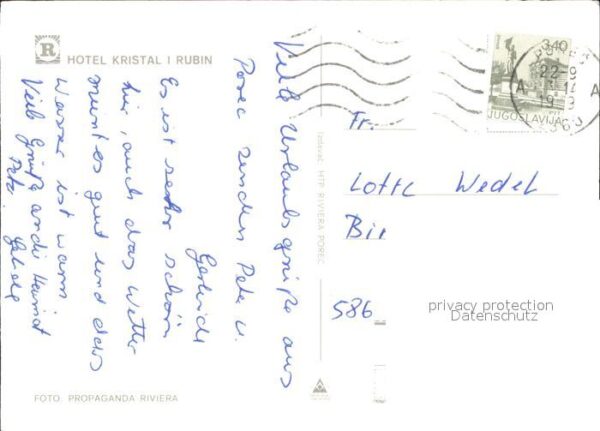 HOTEL KRISTAL I RUBIN
Viele Urlaubsgrüße aus
Porec senden Peter u.
Gerlinde
Es ist sehr schön
hier, auch das Wetter
meint es gut und das
Wasser ist warm
Viele Grüße an die Heimat
Peter
FOTO: PROPAGANDA RIVIERA
Izdavač: HTP RIVIERA POREČ
3,40
JUGOSLAVIJA
Fr.
Lotte Wedel
Bir
586
privacy protection
Datenschutz